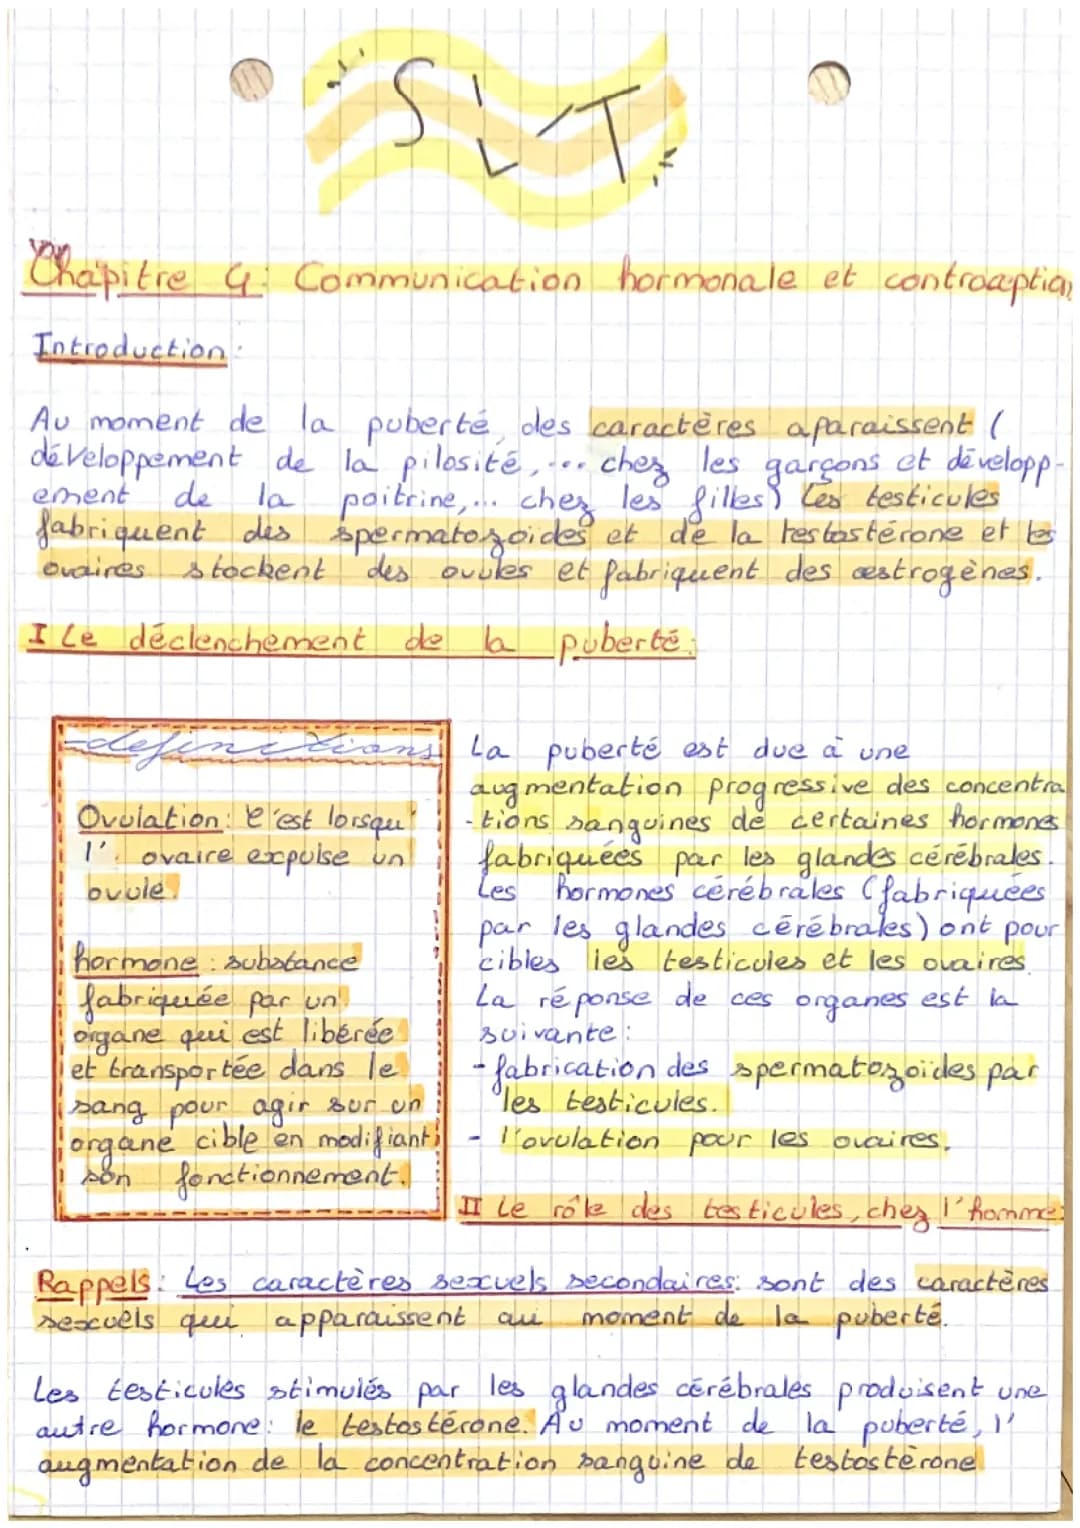 SVT
Chapitre 4: Communication hormonale et contraception
Introduction:
Au moment de la puberté, des caractères aparaissent (
développement de la pilosité,... chez les garçons et développ-
ement de la poitrine,... chez les filles) Les testicules
fabriquent des spermatozoïdes et de la testostérone et les
ovaires stockent des ovules et fabriquent des œstrogènes.
I Le déclenchement de la puberté:
definitions
Ovulation: C'est lorsqu'
l' ovaire expulse un
ovule.
hormone: substance
fabriquée par un
organe qui est libérée
et transportée dans le
sang pour agir sur un
organe cible en modifiant
son fonctionnement.
La puberté est due à une
augmentation progressive des concentra
-tions sanguines de certaines hormones
fabriquées par les glandes cérébrales.
Les hormones cérébrales (fabriquées
par les glandes cérébrales) ont pour
cibles les testicules et les ovaires.
La réponse de ces organes est la
suivante:
- fabrication des spermatozoïdes par
les testicules.
- l'ovulation pour les ovaires.
II Le rôle des testicules, chez l'homme:
Rappels: Les caractères sexuels secondaires: sont des caractères
sexuels qui apparaissent au moment de la puberté.
Les testicules stimulés par les glandes cérébrales produisent une
autre hormone: le testostérone. Au moment de la puberté, l'
augmentation de la concentration sanguine de testostèrone